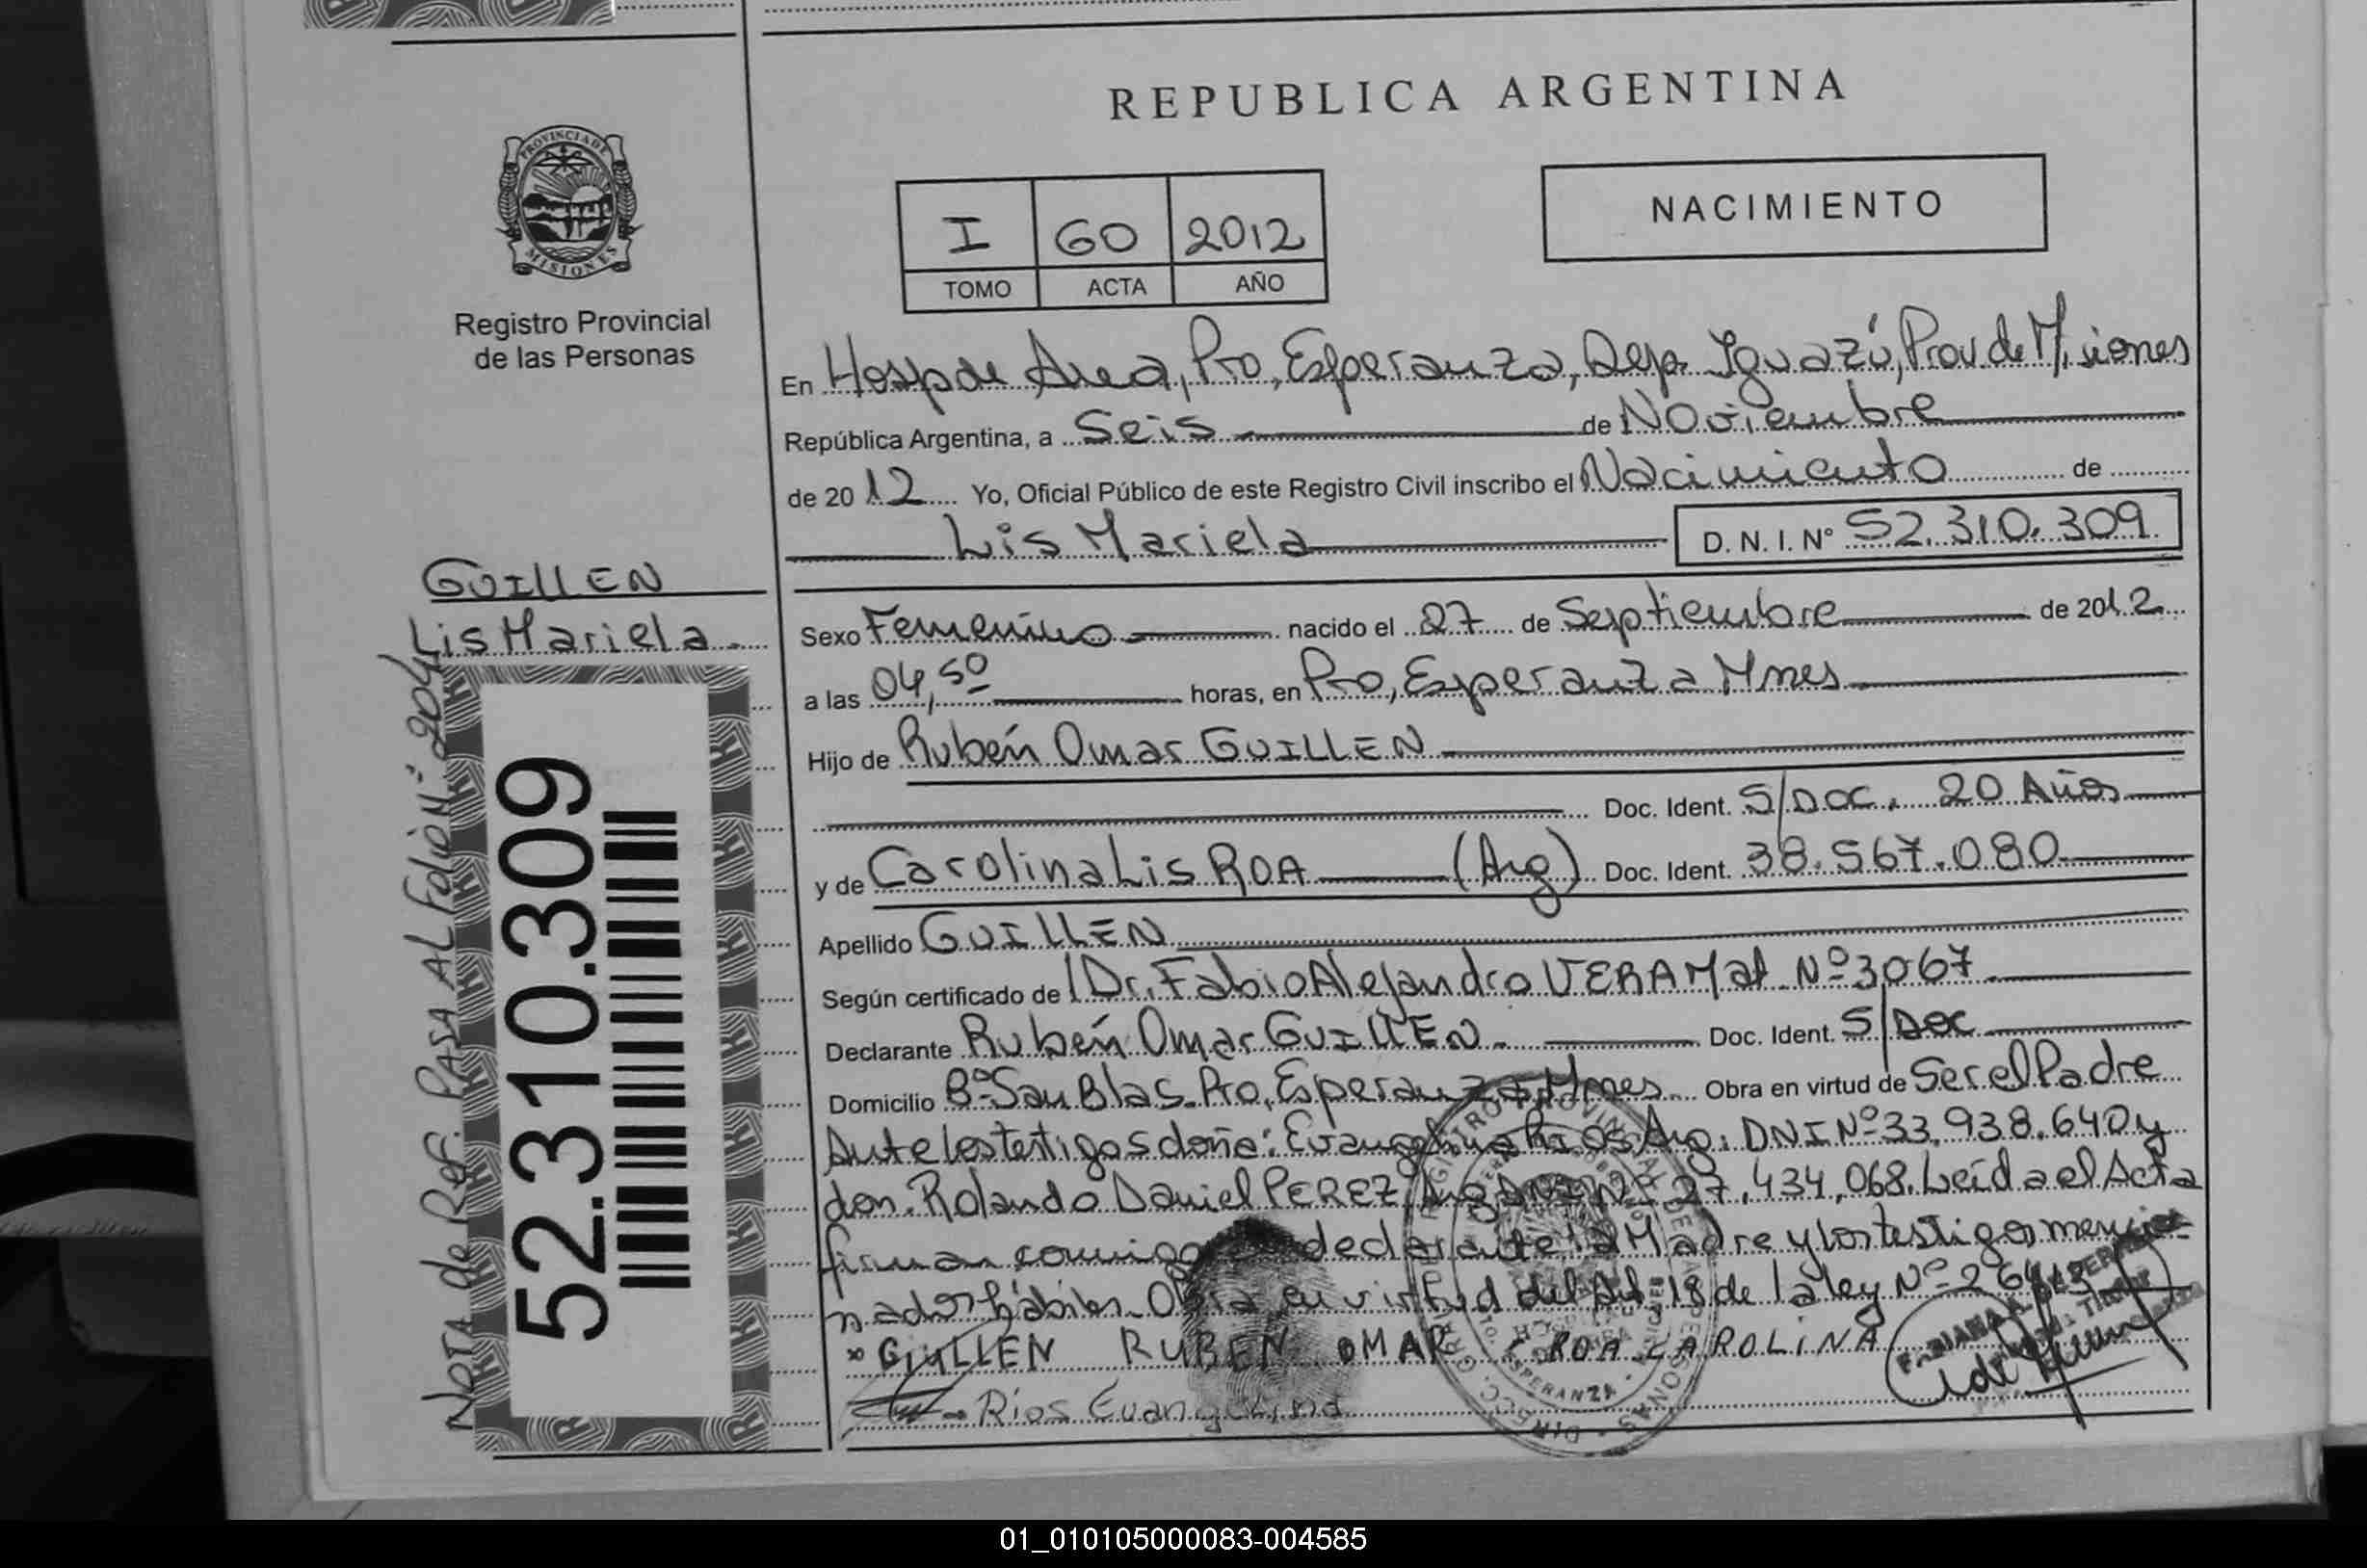 REPUBLICA ARGENTINA
PROVINCIA DE
MISIONES
Registro Provincial
de las Personas
I 60 2012
TOMO ACTA AÑO
NACIMIENTO
En Hosp de Area, Pto, Esperanza, Dep. Iguazú, Prov de Misiones
República Argentina, a Seis de Noviembre
de 2012 Yo, Oficial Público de este Registro Civil inscribo el Nacimiento de
Lis Mariela D. N. I. N° 52.310.309
GUILLEN
Lis Mariela
Sexo Femenino nacido el 27 de Septiembre de 2012
a las 04,50 horas, en Pto, Esperanza Mnes
Hijo de Rubén Omar GUILLEN
Doc. Ident. S/Doc. 20 Años
y de Carolina Lis ROA (Arg) Doc. Ident. 38.567.080
Apellido GUILLEN
Según certificado de Dr. Fabio Alejandro VERA Mat. Nº 3067
Declarante Rubén Omar GUILLEN Doc. Ident. S/Doc
Domicilio Bº San Blas. Pto, Esperanza Mnes Obra en virtud de Ser el Padre
Ante los testigos doña: Evangelina Rios, Arg. DNI Nº 33.938.640 y
don. Rolando Daniel PEREZ, Arg. DNI Nº 27.434.068. Leída el Acta
firman conmigo declarante la Madre y los testigos mencio-
nados hábiles. Obra en virtud del Art. 18 de la ley Nº 26413
GUILLEN RUBEN OMAR ROA CAROLINA
Rios Evangelina
Nota de Ref. PASA AL Folio Nº 204
52.310.309
01_010105000083-004585